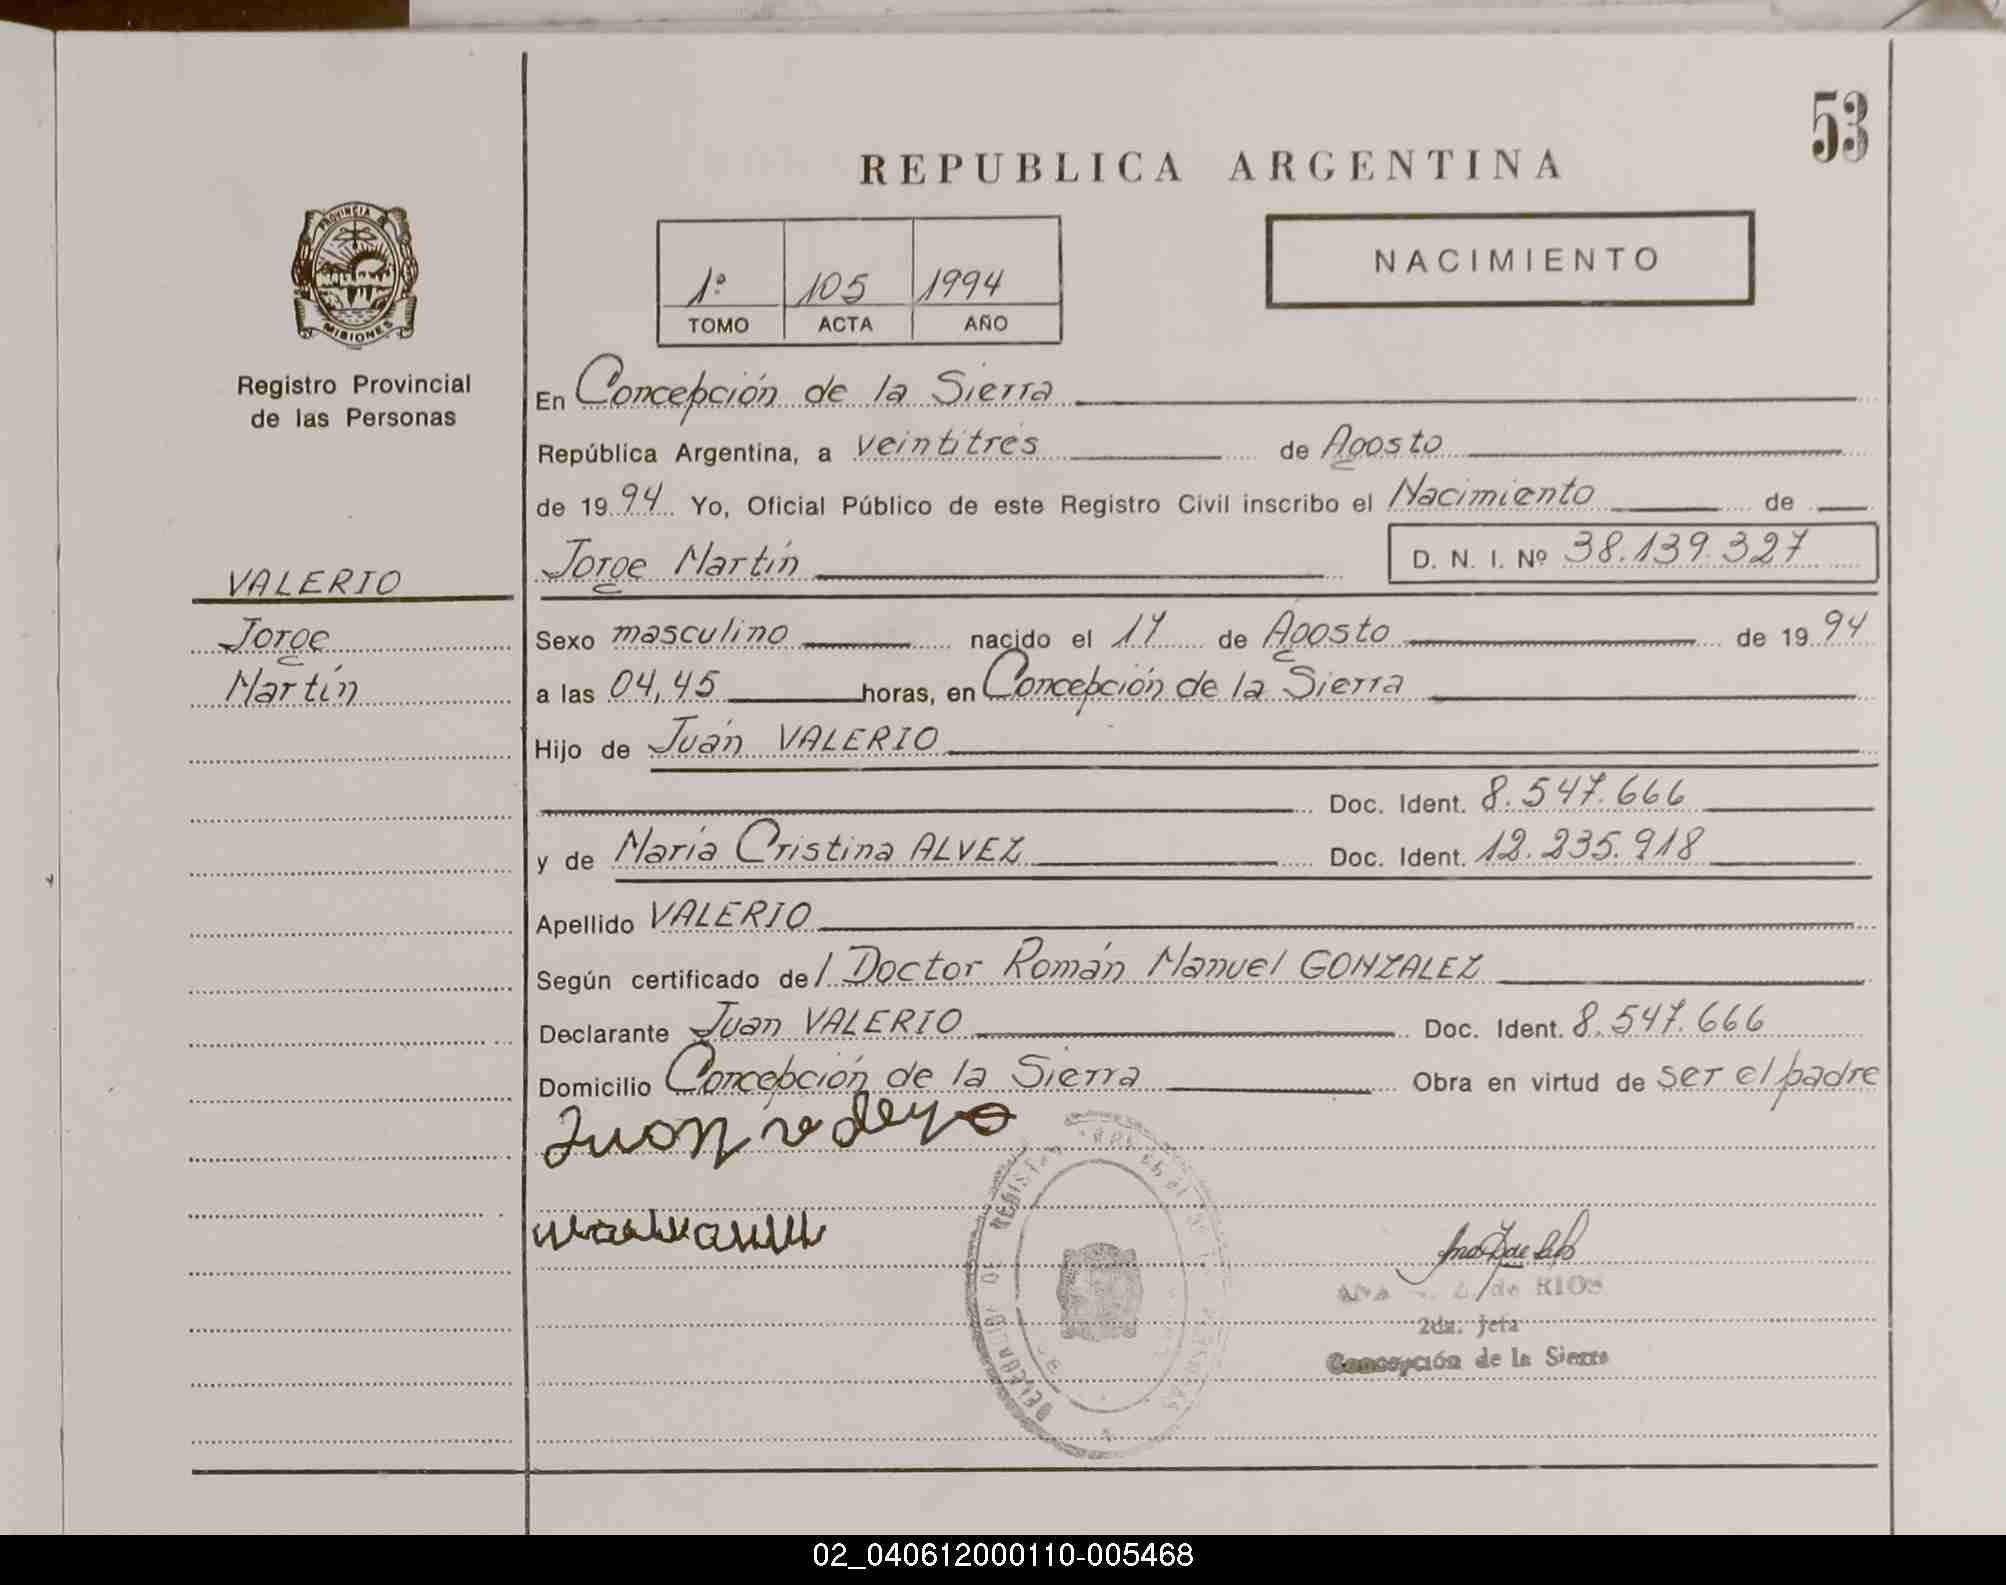 53
REPUBLICA ARGENTINA
PROVINCIA DE
MISIONES
Registro Provincial
de las Personas
1º 105 1994
TOMO ACTA AÑO
NACIMIENTO
En Concepción de la Sierra
República Argentina, a veintitrés de Agosto
de 1994 Yo, Oficial Público de este Registro Civil inscribo el Nacimiento de
Jorge Martín D. N. I. Nº 38.139.327
VALERIO
Jorge
Martín
Sexo masculino nacido el 17 de Agosto de 1994
a las 04,45 horas, en Concepción de la Sierra
Hijo de Juán VALERIO
Doc. Ident. 8.547.666
y de María Cristina ALVEZ Doc. Ident. 12.235.918
Apellido VALERIO
Según certificado del Doctor Román Manuel GONZALEZ
Declarante Juan VALERIO Doc. Ident. 8.547.666
Domicilio Concepción de la Sierra Obra en virtud de ser el padre
Juan
de RIOS
2da. Jefa
Concepción de la Sierra
02_040612000110-005468